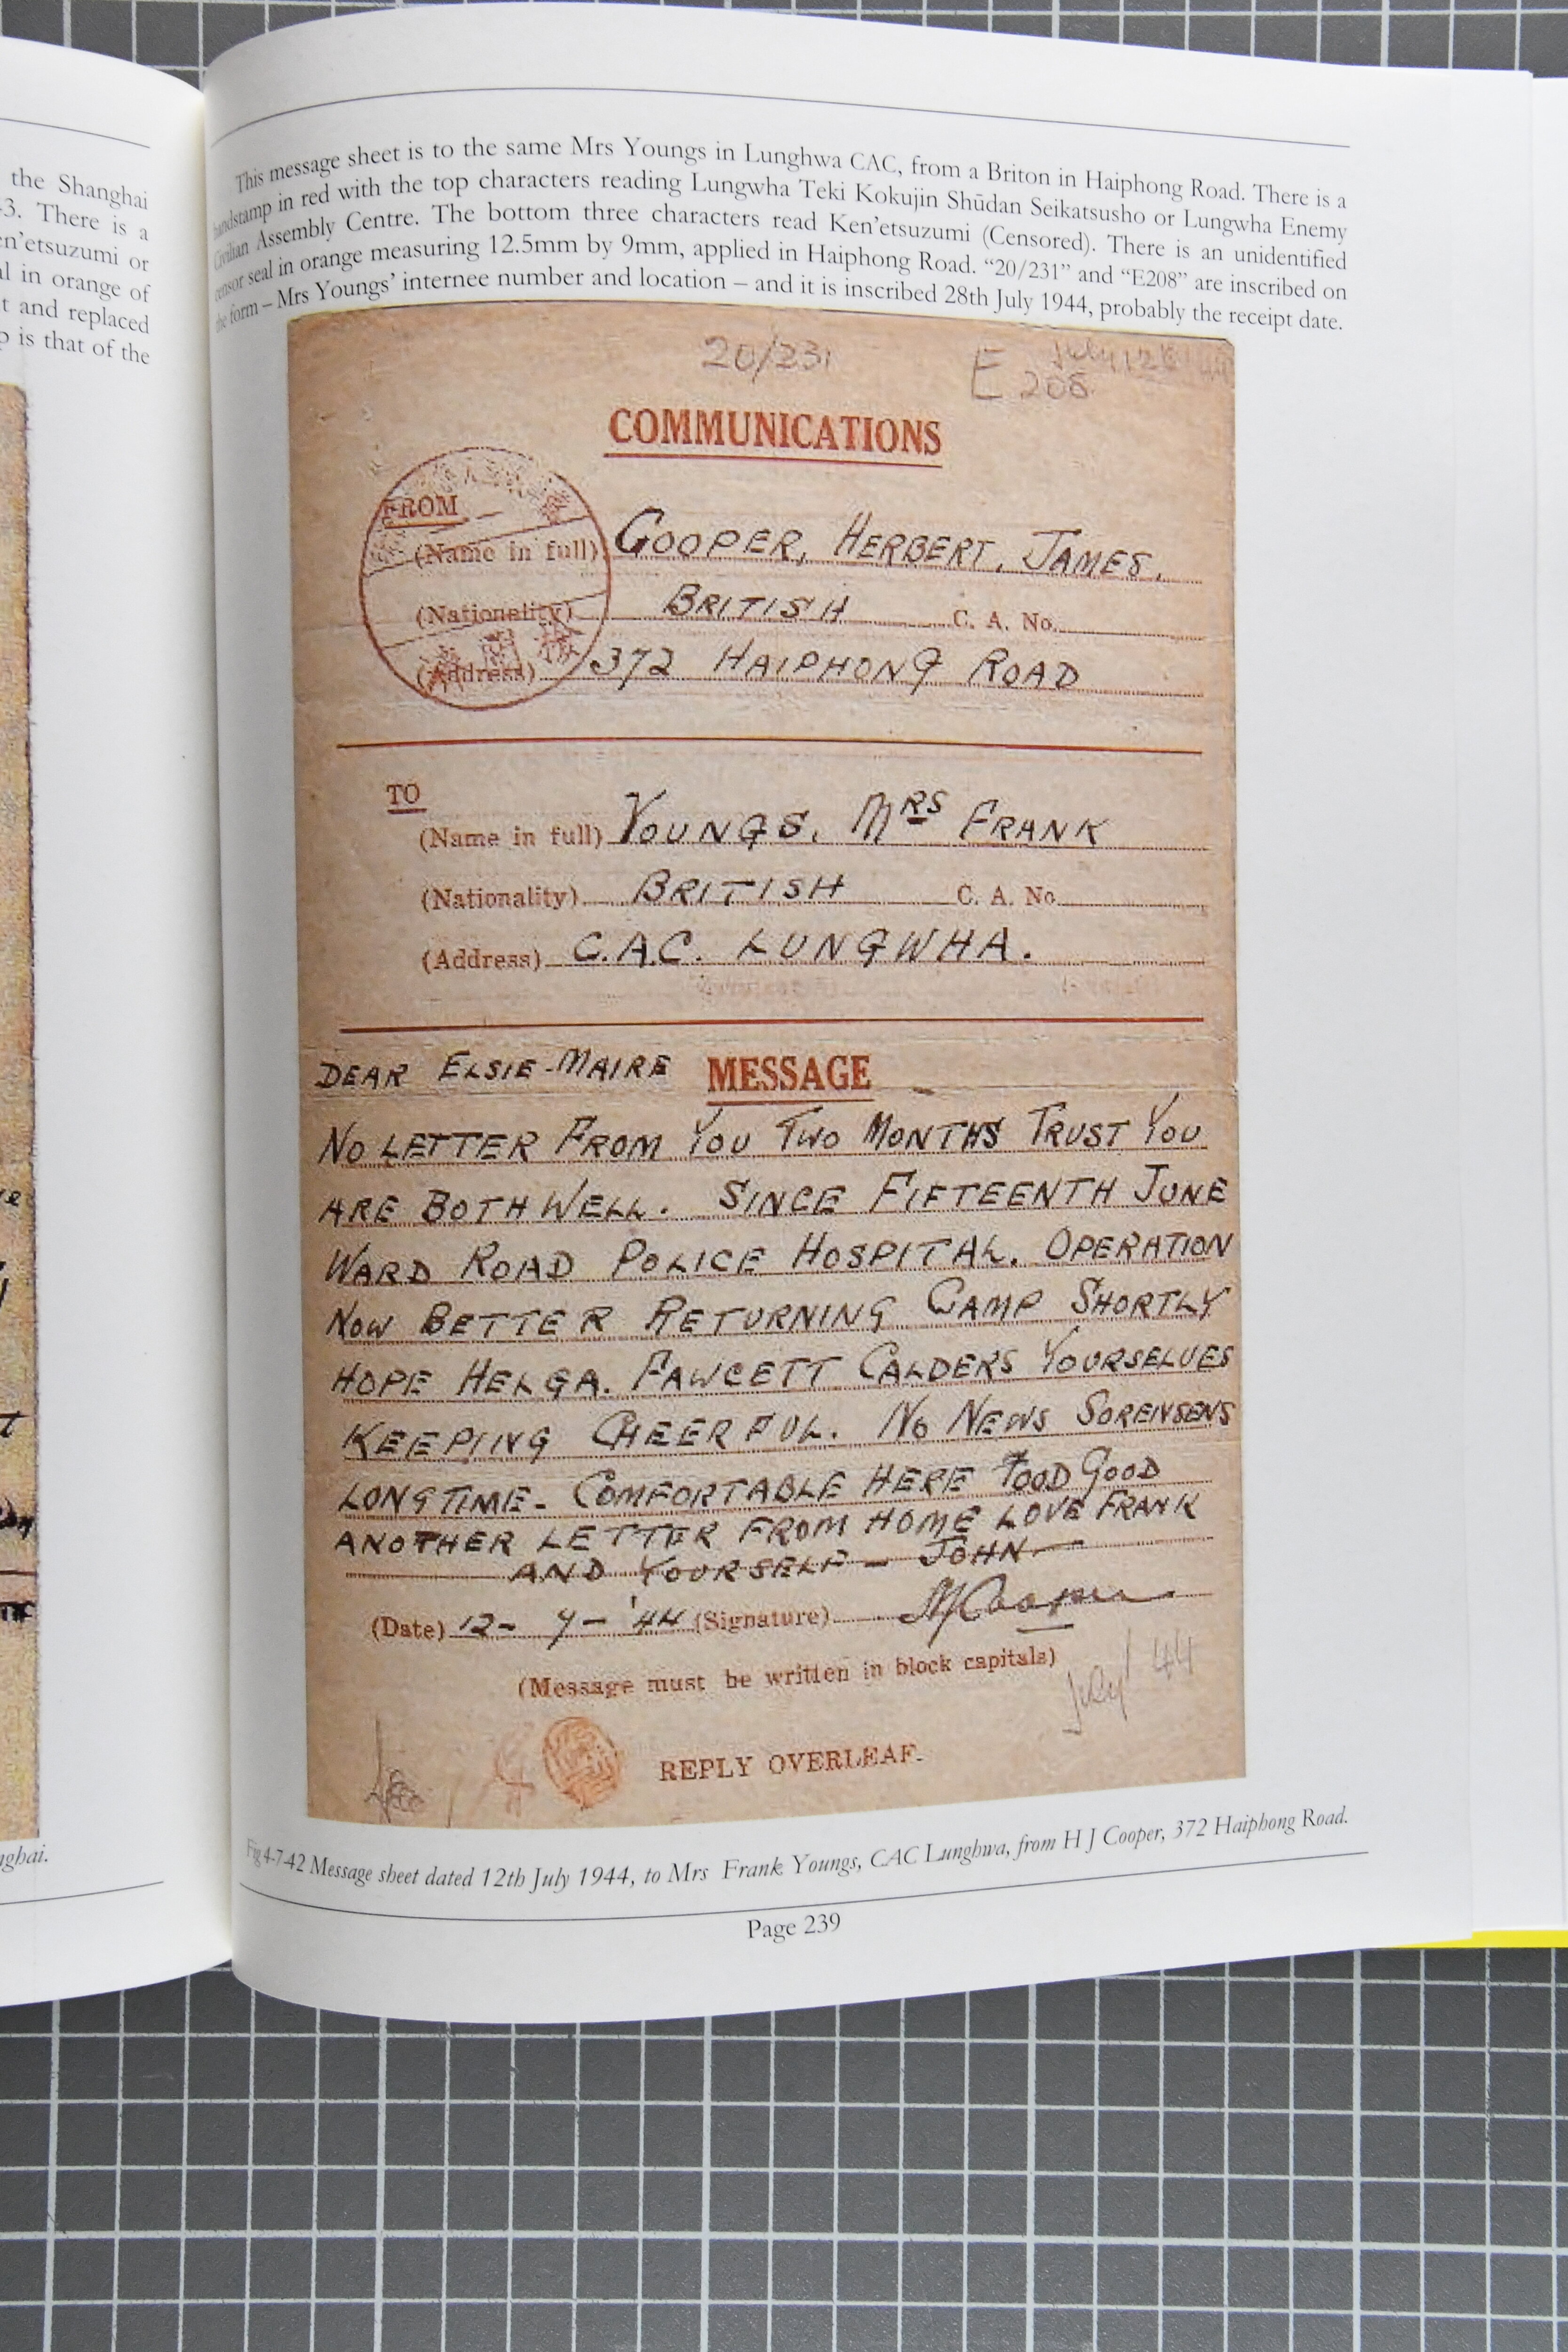 the Shanghai
43. There is a
en'etsuzumi or
al in orange of
t and replaced
p is that of the
ghai.
This message sheet is to the same Mrs Youngs in Lunghwa CAC, from a Briton in Haiphong Road. There is a
handstamp in red with the top characters reading Lungwha Teki Kokujin Shūdan Seikatsusho or Lungwha Enemy
Civilian Assembly Centre. The bottom three characters read Ken'etsuzumi (Censored). There is an unidentified
censor seal in orange measuring 12.5mm by 9mm, applied in Haiphong Road. "20/231" and "E208" are inscribed on
the form – Mrs Youngs' internee number and location – and it is inscribed 28th July 1944, probably the receipt date.
20/231
E 208
COMMUNICATIONS
FROM
(Name in full) COOPER, HERBERT, JAMES.
(Nationality) BRITISH C. A. No.
(Address) 372 HAIPHONG ROAD
TO
(Name in full) YOUNGS, MRS FRANK
(Nationality) BRITISH C. A. No.
(Address) C.A.C. LUNGWHA.
DEAR ELSIE-MAIRE MESSAGE
NO LETTER FROM YOU TWO MONTHS TRUST YOU
ARE BOTH WELL. SINCE FIFTEENTH JUNE
WARD ROAD POLICE HOSPITAL. OPERATION
NOW BETTER RETURNING CAMP SHORTLY
HOPE HELGA. FAWCETT CALDERS YOURSELVES
KEEPING CHEERFUL. NO NEWS SORENSENS
LONGTIME - COMFORTABLE HERE FOOD GOOD
ANOTHER LETTER FROM HOME LOVE FRANK
AND YOURSELF - JOHN
(Date) 12- 7- '44 (Signature) HJCooper
(Message must be written in block capitals)
July 44
REPLY OVERLEAF.
Fig 4-7-42 Message sheet dated 12th July 1944, to Mrs Frank Youngs, CAC Lunghwa, from H J Cooper, 372 Haiphong Road.
Page 239